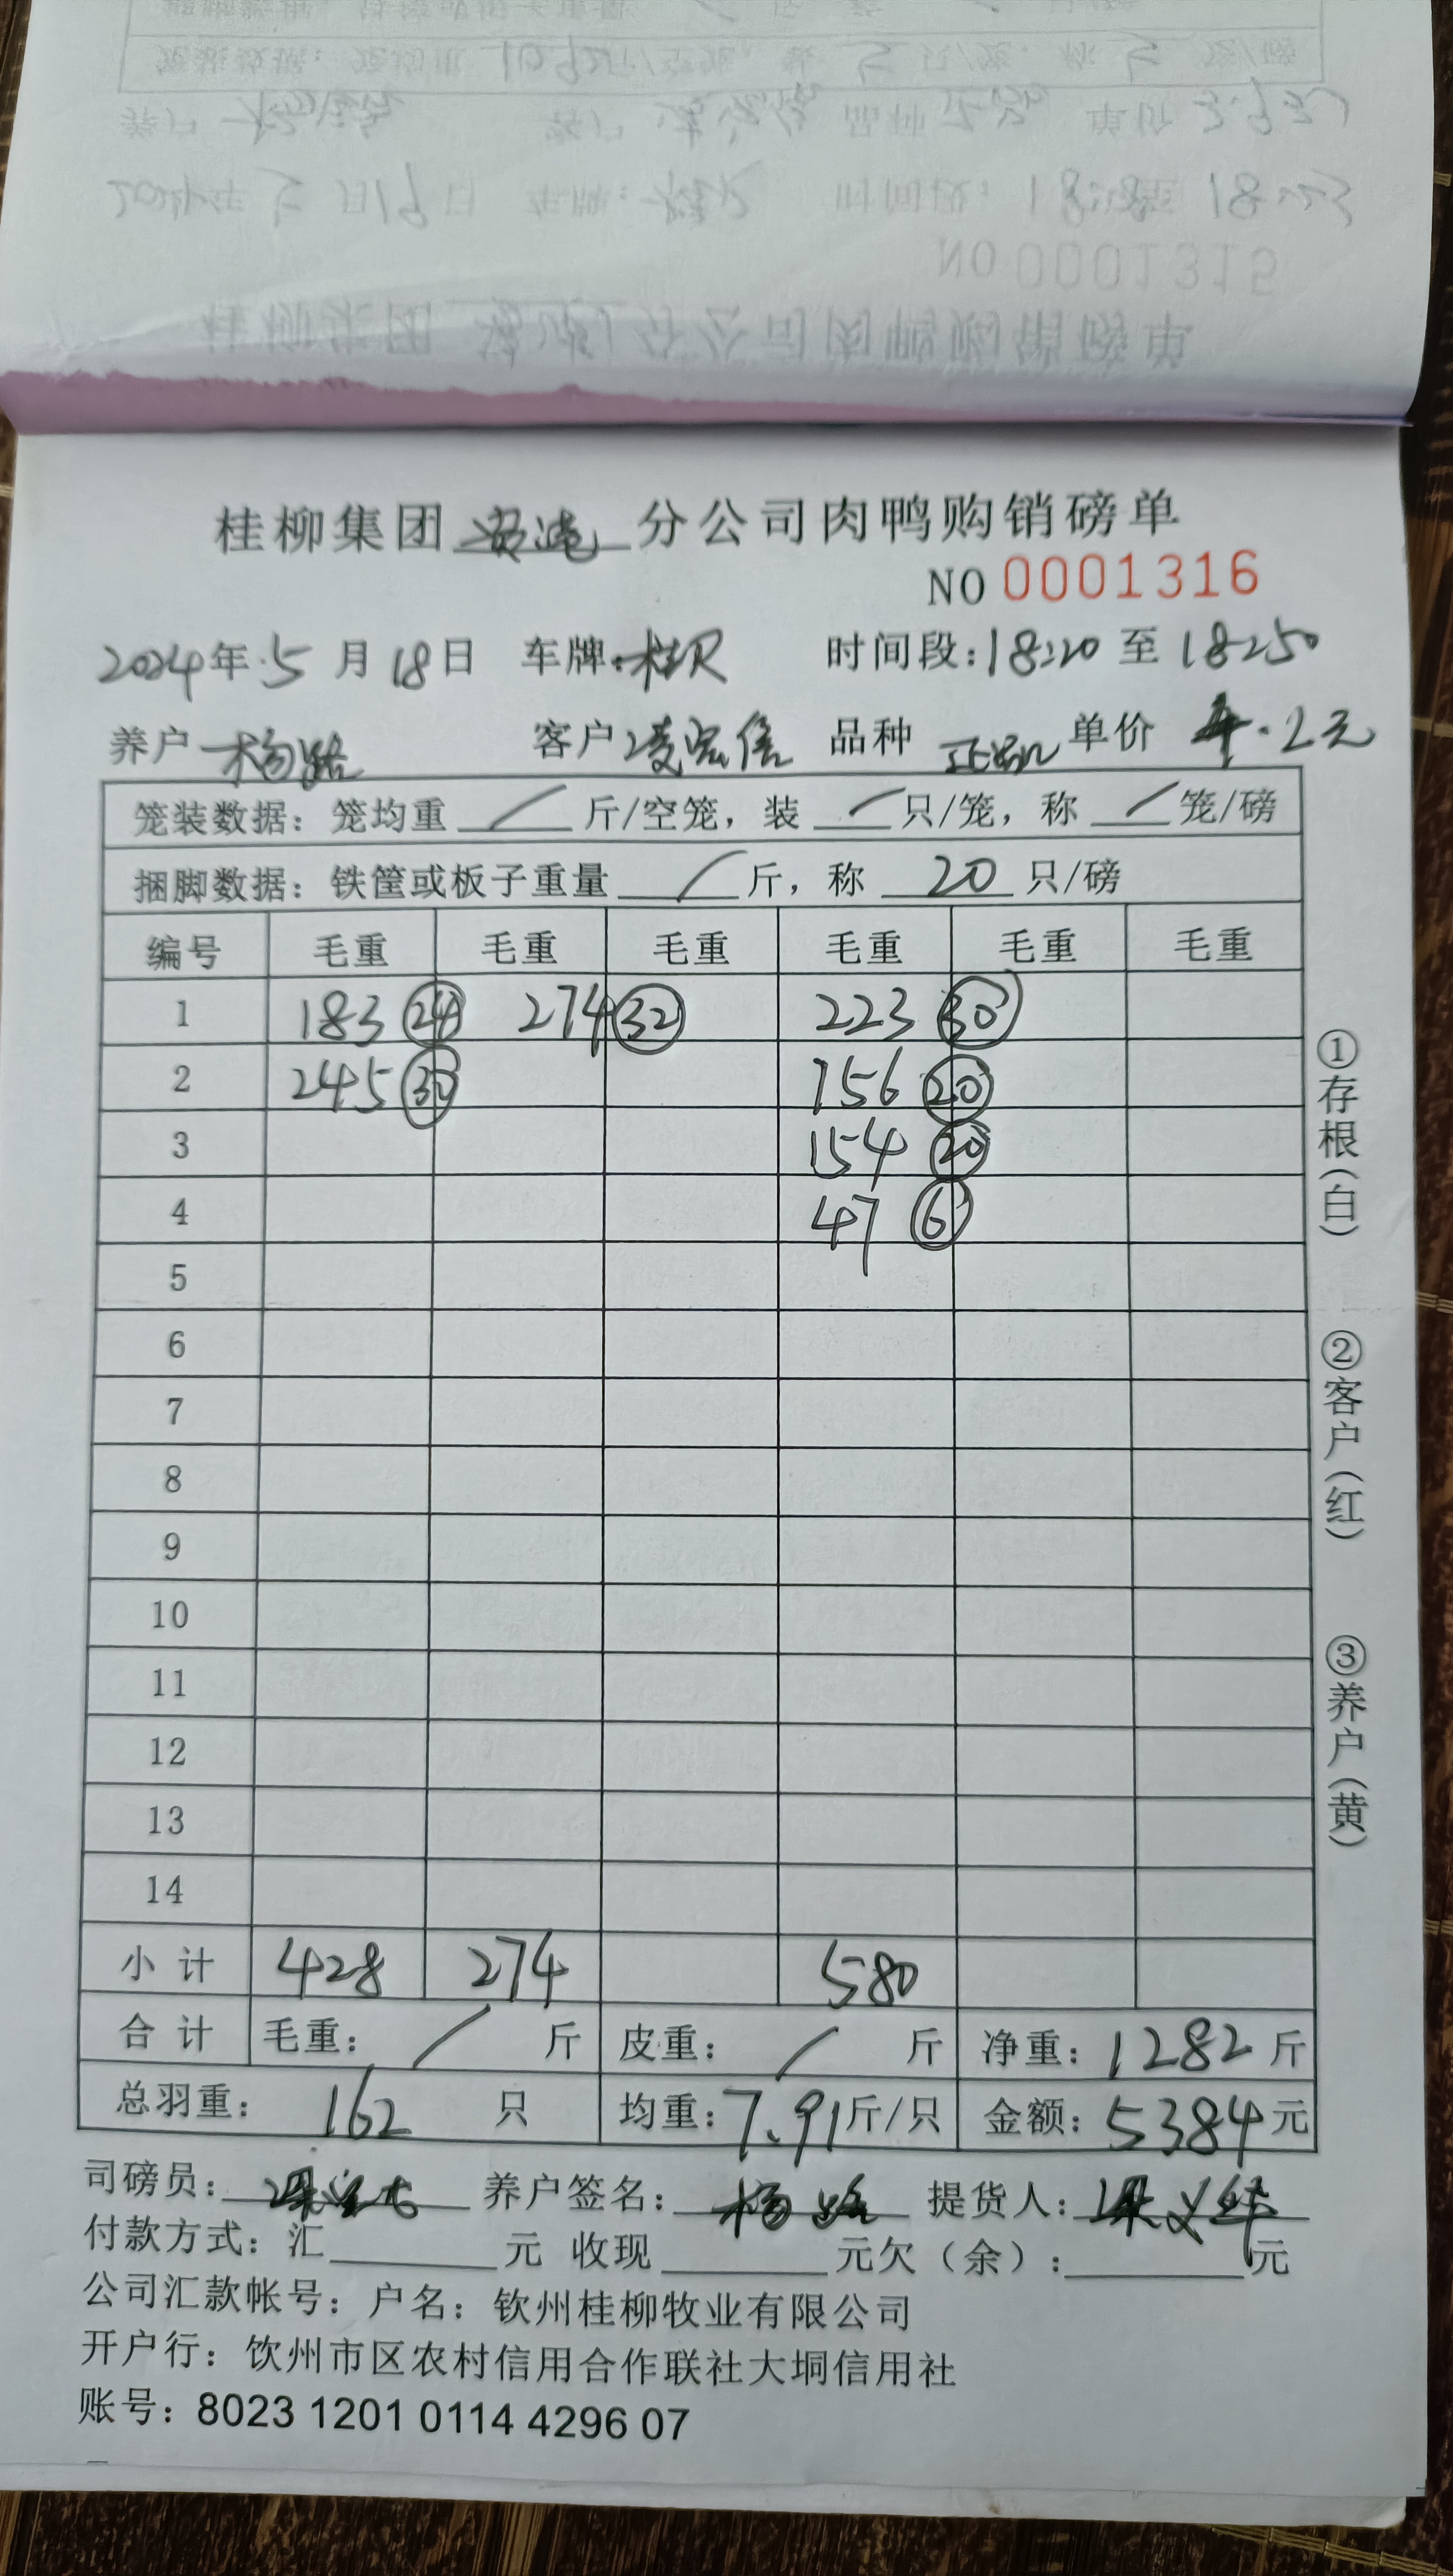 NO 0001315
桂柳集团 分公司肉鸭购销磅单
NO 0001316
2024年 5 月 18 日 车牌: 时间段:18:20 至 18:50
养户 杨路 客户 凌宏信 品种 正品 单价 4.2元
笼装数据: 笼均重 / 斤/空笼, 装 / 只/笼, 称 / 笼/磅
捆脚数据: 铁筐或板子重量 / 斤, 称 20 只/磅
编号 毛重 毛重 毛重 毛重 毛重 毛重
1 183 24 274 32 223 30
2 245 30 156 20
3 154 20
4 47 6
5
6
7
8
9
10
11
12
13
14
小计 428 274 580
合计 毛重: / 斤 皮重: / 斤 净重: 1282 斤
总羽重: 162 只 均重: 7.91斤/只 金额: 5384元
司磅员: 养户签名: 杨路 提货人:
付款方式: 汇 元 收现 元欠(余): 元
公司汇款帐号: 户名: 钦州桂柳牧业有限公司
开户行: 饮州市区农村信用合作联社大垌信用社
账号: 8023 1201 0114 4296 07
①存根(白)
②客户(红)
③养户(黄)